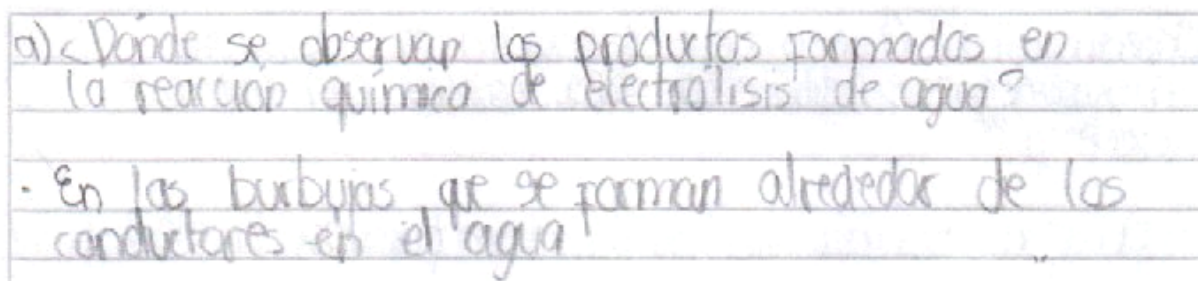 a) ¿Dónde se observan los productos formados en
la reacción química de electrólisis de agua?
. En las burbujas que se forman alrededor de los
conductores en el agua